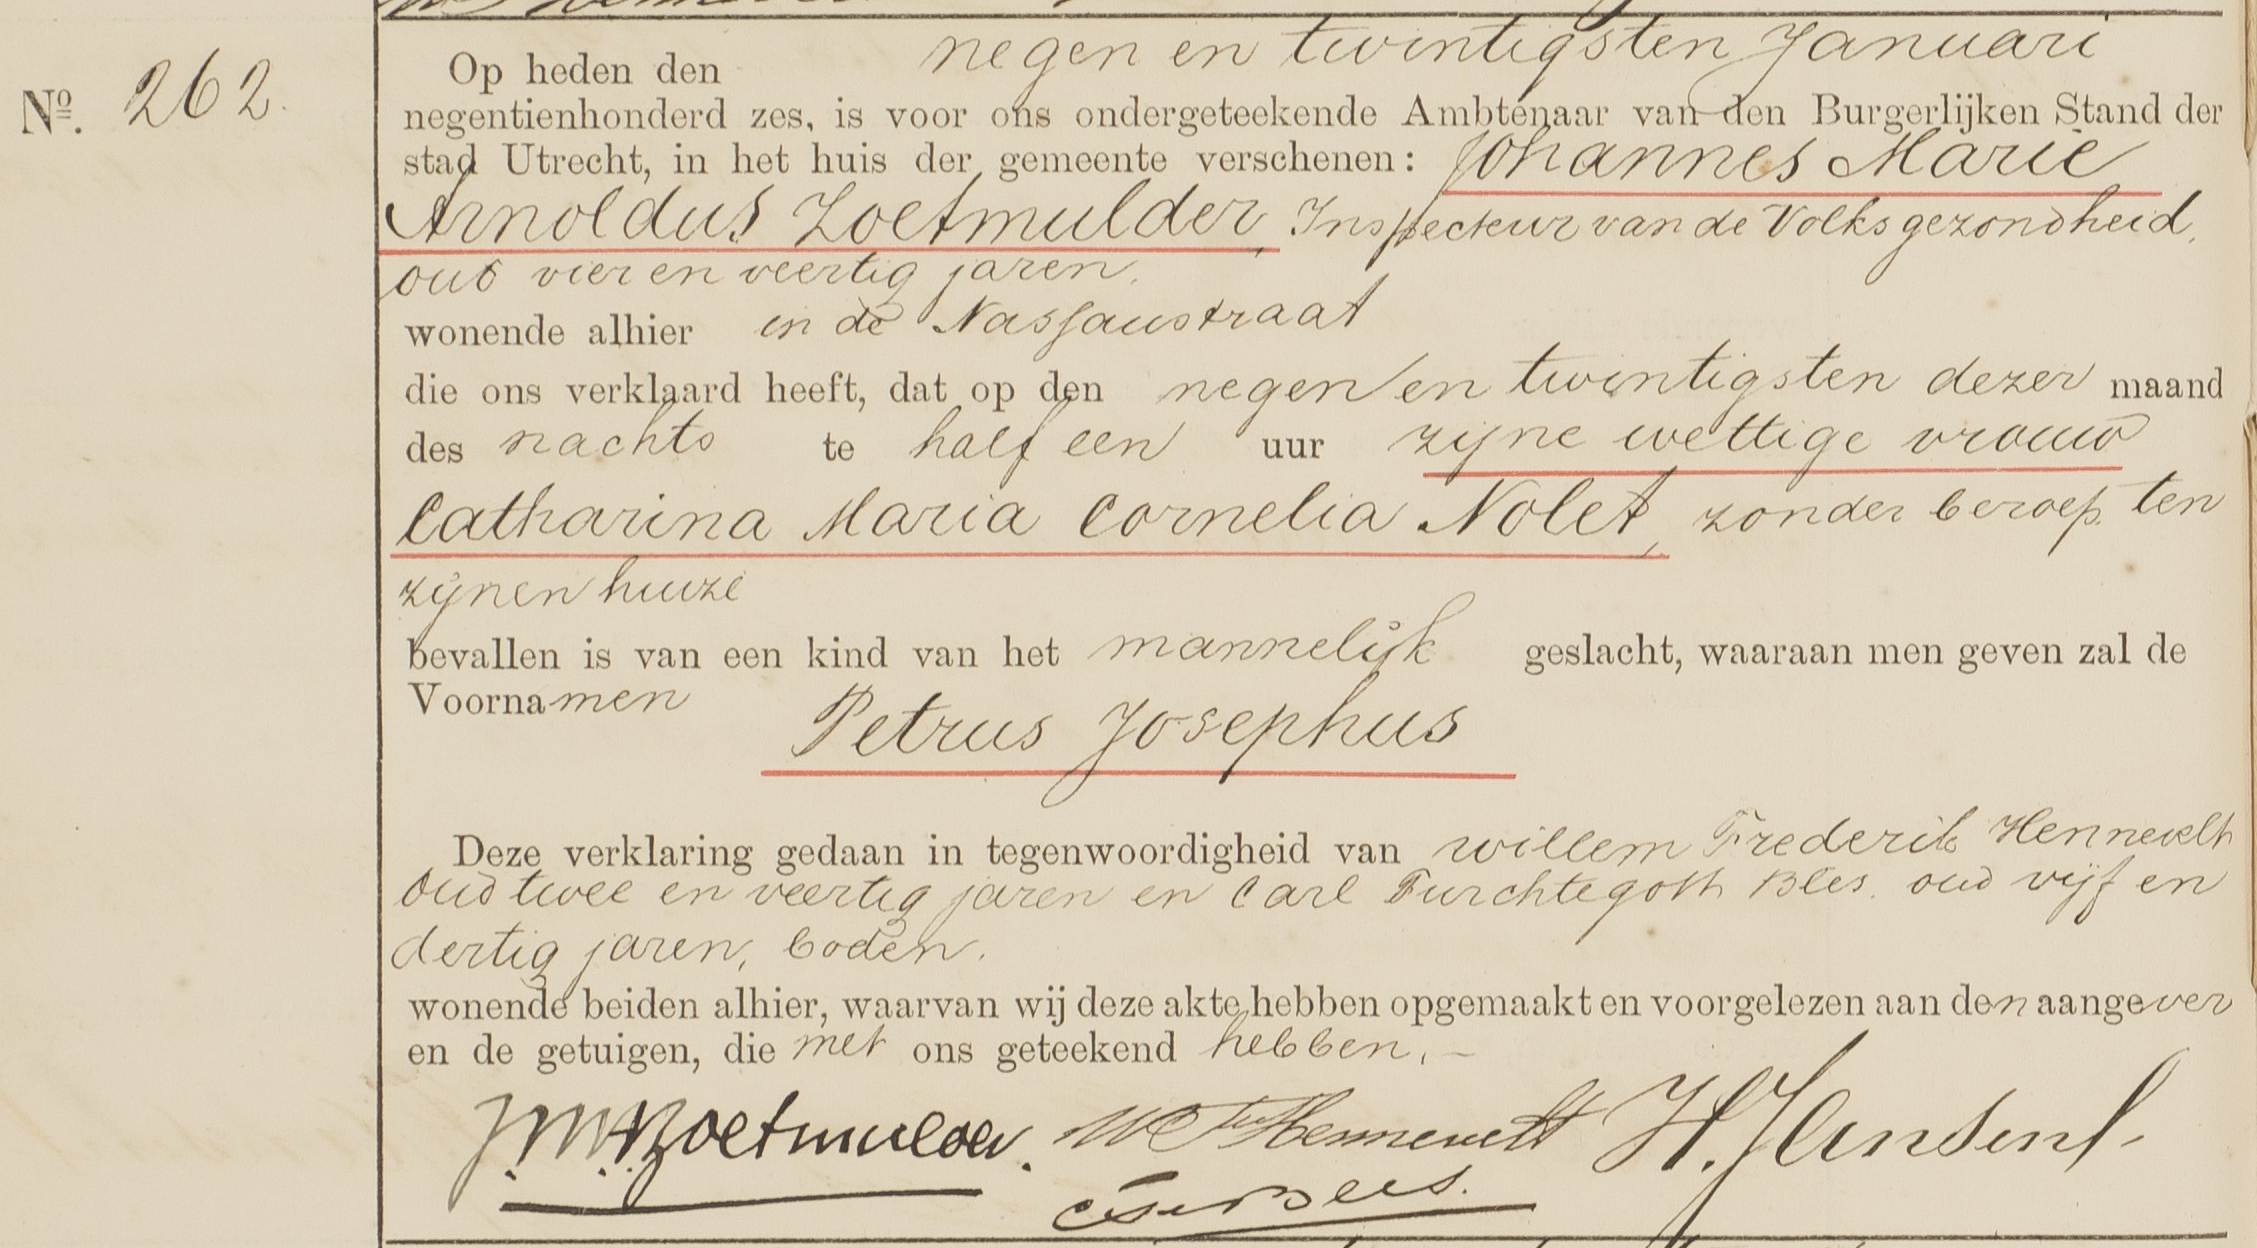 Nº. 262.
Op heden den negen en twintigsten Januari
negentienhonderd zes, is voor ons ondergeteekende Ambtenaar van den Burgerlijken Stand der
stad Utrecht, in het huis der gemeente verschenen: Johannes Marie
Arnoldus Zoetmulder, Inspecteur van de Volksgezondheid,
oud vier en veertig jaren,
wonende alhier in de Nassaustraat
die ons verklaard heeft, dat op den negen en twintigsten dezer maand
des nachts te half een uur zijne wettige vrouw
Catharina Maria Cornelia Nolet, zonder beroep, ten
zijnen huize
bevallen is van een kind van het mannelijk geslacht, waaraan men geven zal de
Voornamen Petrus Josephus
Deze verklaring gedaan in tegenwoordigheid van Willem Frederik Hennevelt
oud twee en veertig jaren en Carl Furchtegott Bles, oud vijf en
dertig jaren, boden.
wonende beiden alhier, waarvan wij deze akte hebben opgemaakt en voorgelezen aan den aangever
en de getuigen, die met ons geteekend hebben. –
J.M.A. Zoetmulder. W F Hennevelt H. Jansen
C F Bles.